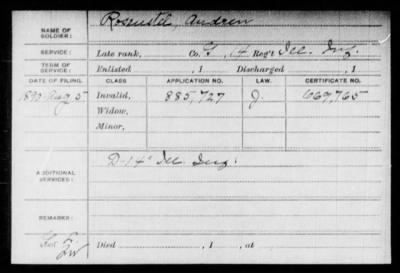 NAME OF SOLDIER: Rosensteel, Andrew
SERVICE: Late rank, Co. G, 14 Reg't Ill. Inf.
TERM OF SERVICE: Enlisted , 1 Discharged , 1
DATE OF FILING. CLASS. APPLICATION NO. LAW. CERTIFICATE NO.
1890 Aug 5 Invalid, 885,727 J. 669,765
Widow,
Minor,
ADDITIONAL SERVICES: D-14" Ill. Inf.
REMARKS:
Died , 1 , at